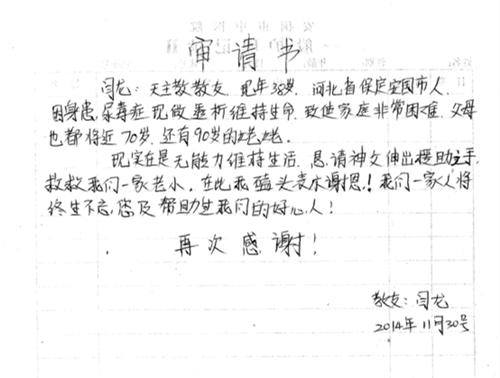 申请书
闫龙：天主教教友，现年38岁，河北省保定安国市人，
因身患尿毒症现做透析维持生命，致使家庭非常困难，父母
也都将近70岁，还有90岁的姥姥。
现实在是无能力维持生活，恳请神父伸出援助之手，
救救我们一家老小，在此我磕头表示谢恩！我们一家人将
终生不忘，您及帮助过我们的好心人！
再次感谢！
教友：闫龙
2014年11月30号